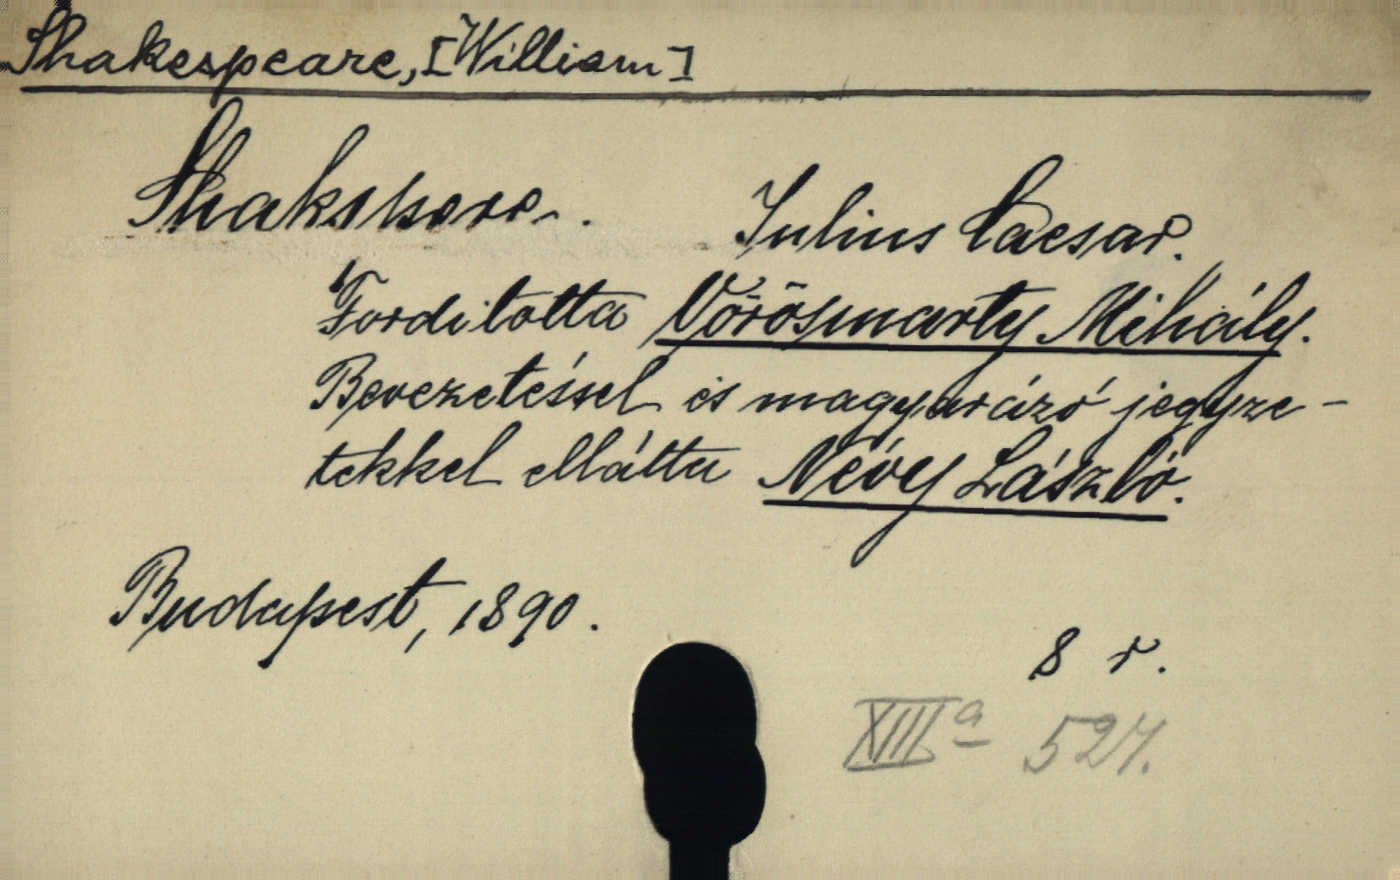 Shakespeare, [William]
Shakspere. Julius Caesar.
Forditotta Vörösmarty Mihály.
Bevezetéssel és magyarázó jegyze-
tekkel ellátta Névy László.
Budapest, 1890.
8 r.
XIII a 527.